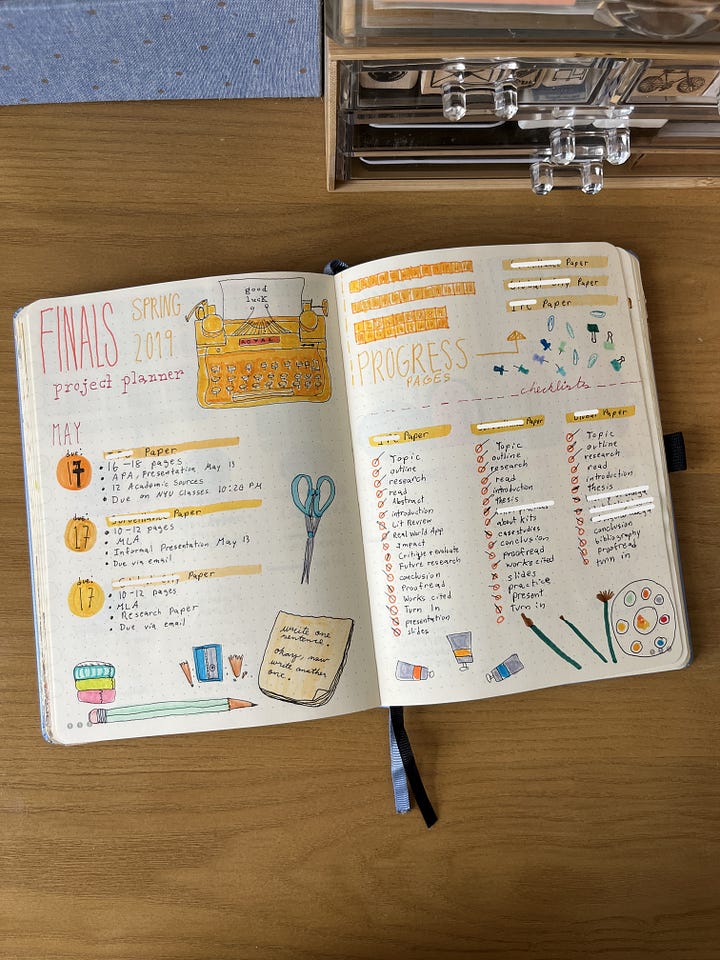 FINALS
SPRING
2019
project planner
good
luck
ROYAL
MAY
due:
17
Paper
16-18 pages
APA, Presentation May 13
12 Academic Sources
Due on NYU Classes 10:28 PM
due:
17
Paper
10-12 pages
MLA
Informal Presentation May 13
Due via email
due:
17
Paper
10-12 pages
MLA
Research Paper
Due via email
write one
sentence.
okay, now
write another
one.
Paper
Paper
Paper
PROGRESS
PAGES
checklists
Paper
Topic
outline
research
read
Abstract
introduction
Lit Review
Real World App
Impact
Critique + evaluate
Future research
conclusion
Proofread
Works cited
Turn In
presentation
slides
Paper
Topic
outline
research
read
introduction
thesis
about kits
case studies
conclusion
proofread
works cited
slides
practice
present
Turn in
Paper
Topic
outline
research
read
introduction
thesis
conclusion
bibliography
proofread
turn in